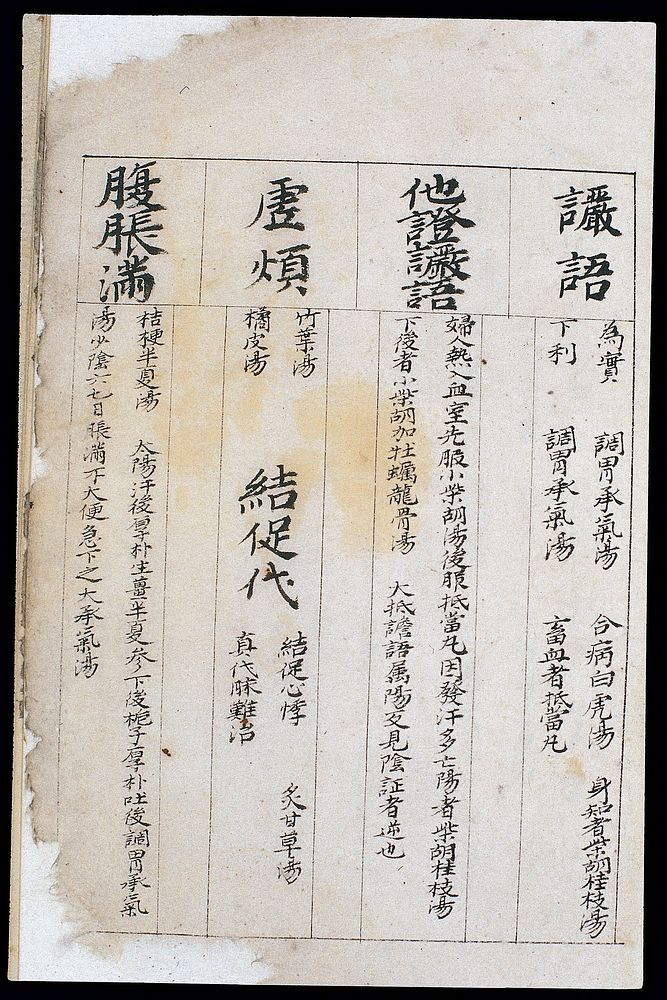 讝語
為實　調胃承氣湯　合病白虎湯　身知者柴胡桂枝湯
下利　調胃承氣湯　畜血者抵當丸
他證讝語
婦人熱入血室先服小柴胡湯後服抵當丸因發汗多亡陽者柴胡桂枝湯
下後者小柴胡加牡蠣龍骨湯　大抵譫語属陽交見陰証者逆也
虛煩
竹葉湯
橘皮湯
結促代
結促心悸　炙甘草湯
真代脉難治
腹脹滿
桔梗半夏湯　太陽汗後厚朴生薑半夏參下後梔子厚朴吐後調胃承氣
湯少陰六七日脹滿不大便急下之大承氣湯